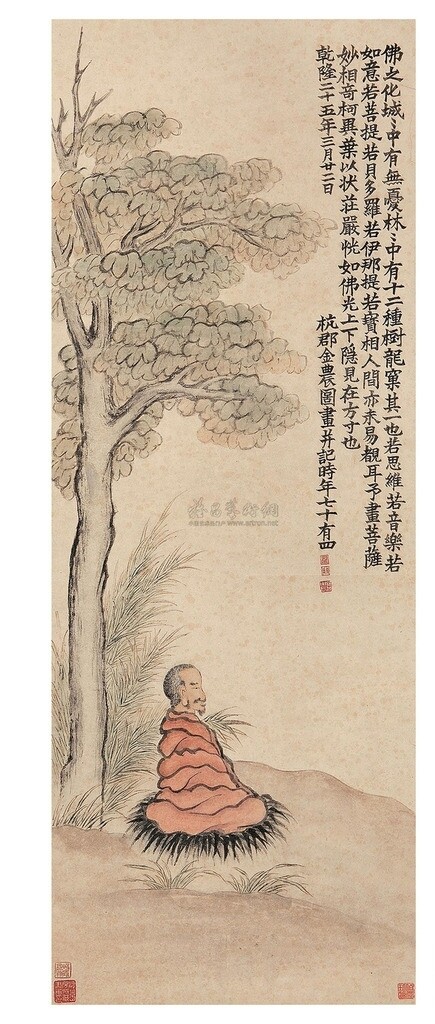 佛之化城〻中有無憂林〻中有十二種樹龍窠其一也若思維若音樂若
如意若菩提若貝多羅若伊那提若寶相人間亦未易覩耳予畫菩薩
妙相奇柯異葉以狀莊嚴恍如佛光上下隱見在方寸也
乾隆二十五年三月廿二日 杭郡金農圖畫并記時年七十有四
www.artron.net